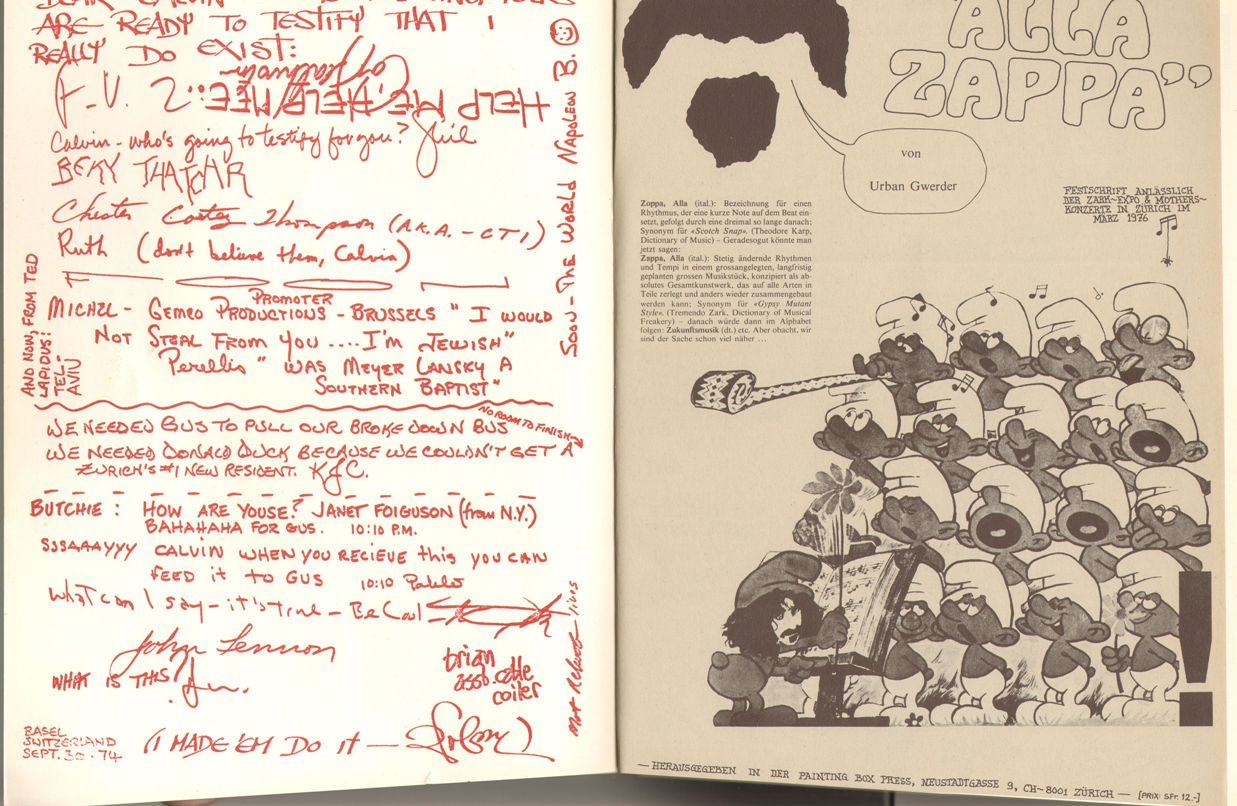 ARE READY TO TESTIFY THAT I
REALLY DO EXIST:
HELP ME, HELP MEE::
Calvin - who's going to testify for you?
BEKY THATCHAR
Chester Thompson (A.K.A. - CT1)
Ruth (don't believe them, Calvin)
AND NOW, FROM TED
LAPIDUS:
TEL-
AVIV
PROMOTER
MICHEL - GEMCO PRODUCTIONS - BRUSSELS " I WOULD
NOT STEAL FROM YOU .... I'M JEWISH"
Perellis " WAS MEYER LANSKY A
SOUTHERN BAPTIST"
SOON - THE WORLD NAPOLEON B.
WE NEEDED GUS TO PULL OUR BROKE DOWN BUS
NO ROOM TO FINISH
WE NEEDED DONALD DUCK BECAUSE WE COULDN'T GET A
ZURICH'S #1 NEW RESIDENT.
BUTCHIE : HOW ARE YOUSE? JANET FOIGUSON (from N.Y.)
BAHAHAHA FOR GUS. 10:10 P.M.
SSSAAAYYY CALVIN WHEN YOU RECIEVE this YOU CAN
FEED it to GUS 10:10 Pablo
What can I say - it's true - Be Cool
John Lennon
WHAT IS THIS?
brian
asso. cable
coiler
BASEL
SWITZERLAND
SEPT. 30 - 74
(I MADE 'EM DO IT —
"ALLA
ZAPPA"
von
Urban Gwerder
FESTSCHRIFT ANLÄSSLICH
DER ZARK~EXPO & MOTHERS~
KONZERTE IN ZÜRICH IM
MÄRZ 1976
Zoppa, Alla (ital.): Bezeichnung für einen
Rhythmus, der eine kurze Note auf dem Beat ein-
setzt, gefolgt durch eine dreimal so lange danach;
Synonym für «Scotch Snap». (Theodore Karp,
Dictionary of Music) – Geradesogut könnte man
jetzt sagen:
Zappa, Alla (ital.): Stetig ändernde Rhythmen
und Tempi in einem grossangelegten, langfristig
geplanten grossen Musikstück, konzipiert als ab-
solutes Gesamtkunstwerk, das auf alle Arten in
Teile zerlegt und anders wieder zusammengebaut
werden kann; Synonym für «Gypsy Mutant
Style». (Tremendo Zark, Dictionary of Musical
Freakery) – danach würde dann im Alphabet
folgen: Zakunftsmusik (dt.) etc. Aber obacht, wir
sind der Sache schon viel näher ...
— HERAUSGEGEBEN IN DER PAINTING BOX PRESS, NEUSTADTGASSE 9, CH~8001 ZÜRICH — [PRIX: SFr. 12.-]